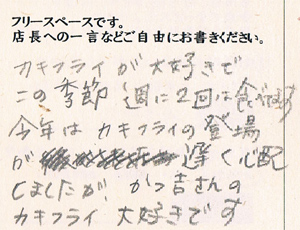 フリースペースです。
店長への一言などご自由にお書きください。
カキフライが大好きで
この季節 週に2回は食べます
今年は カキフライの登場
が 遅く心配
しましたが、かつ吉さんの
カキフライ 大好きです